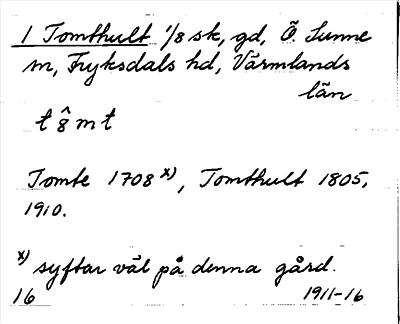 1 Tomthult 1/8 sk, gd, Ö Sunne
sn, Fryksdals hd, Värmlands
län
Tomte 1708 x), Tomthult 1805,
1910.
x) syftar väl på denna gård.
16 1911-16